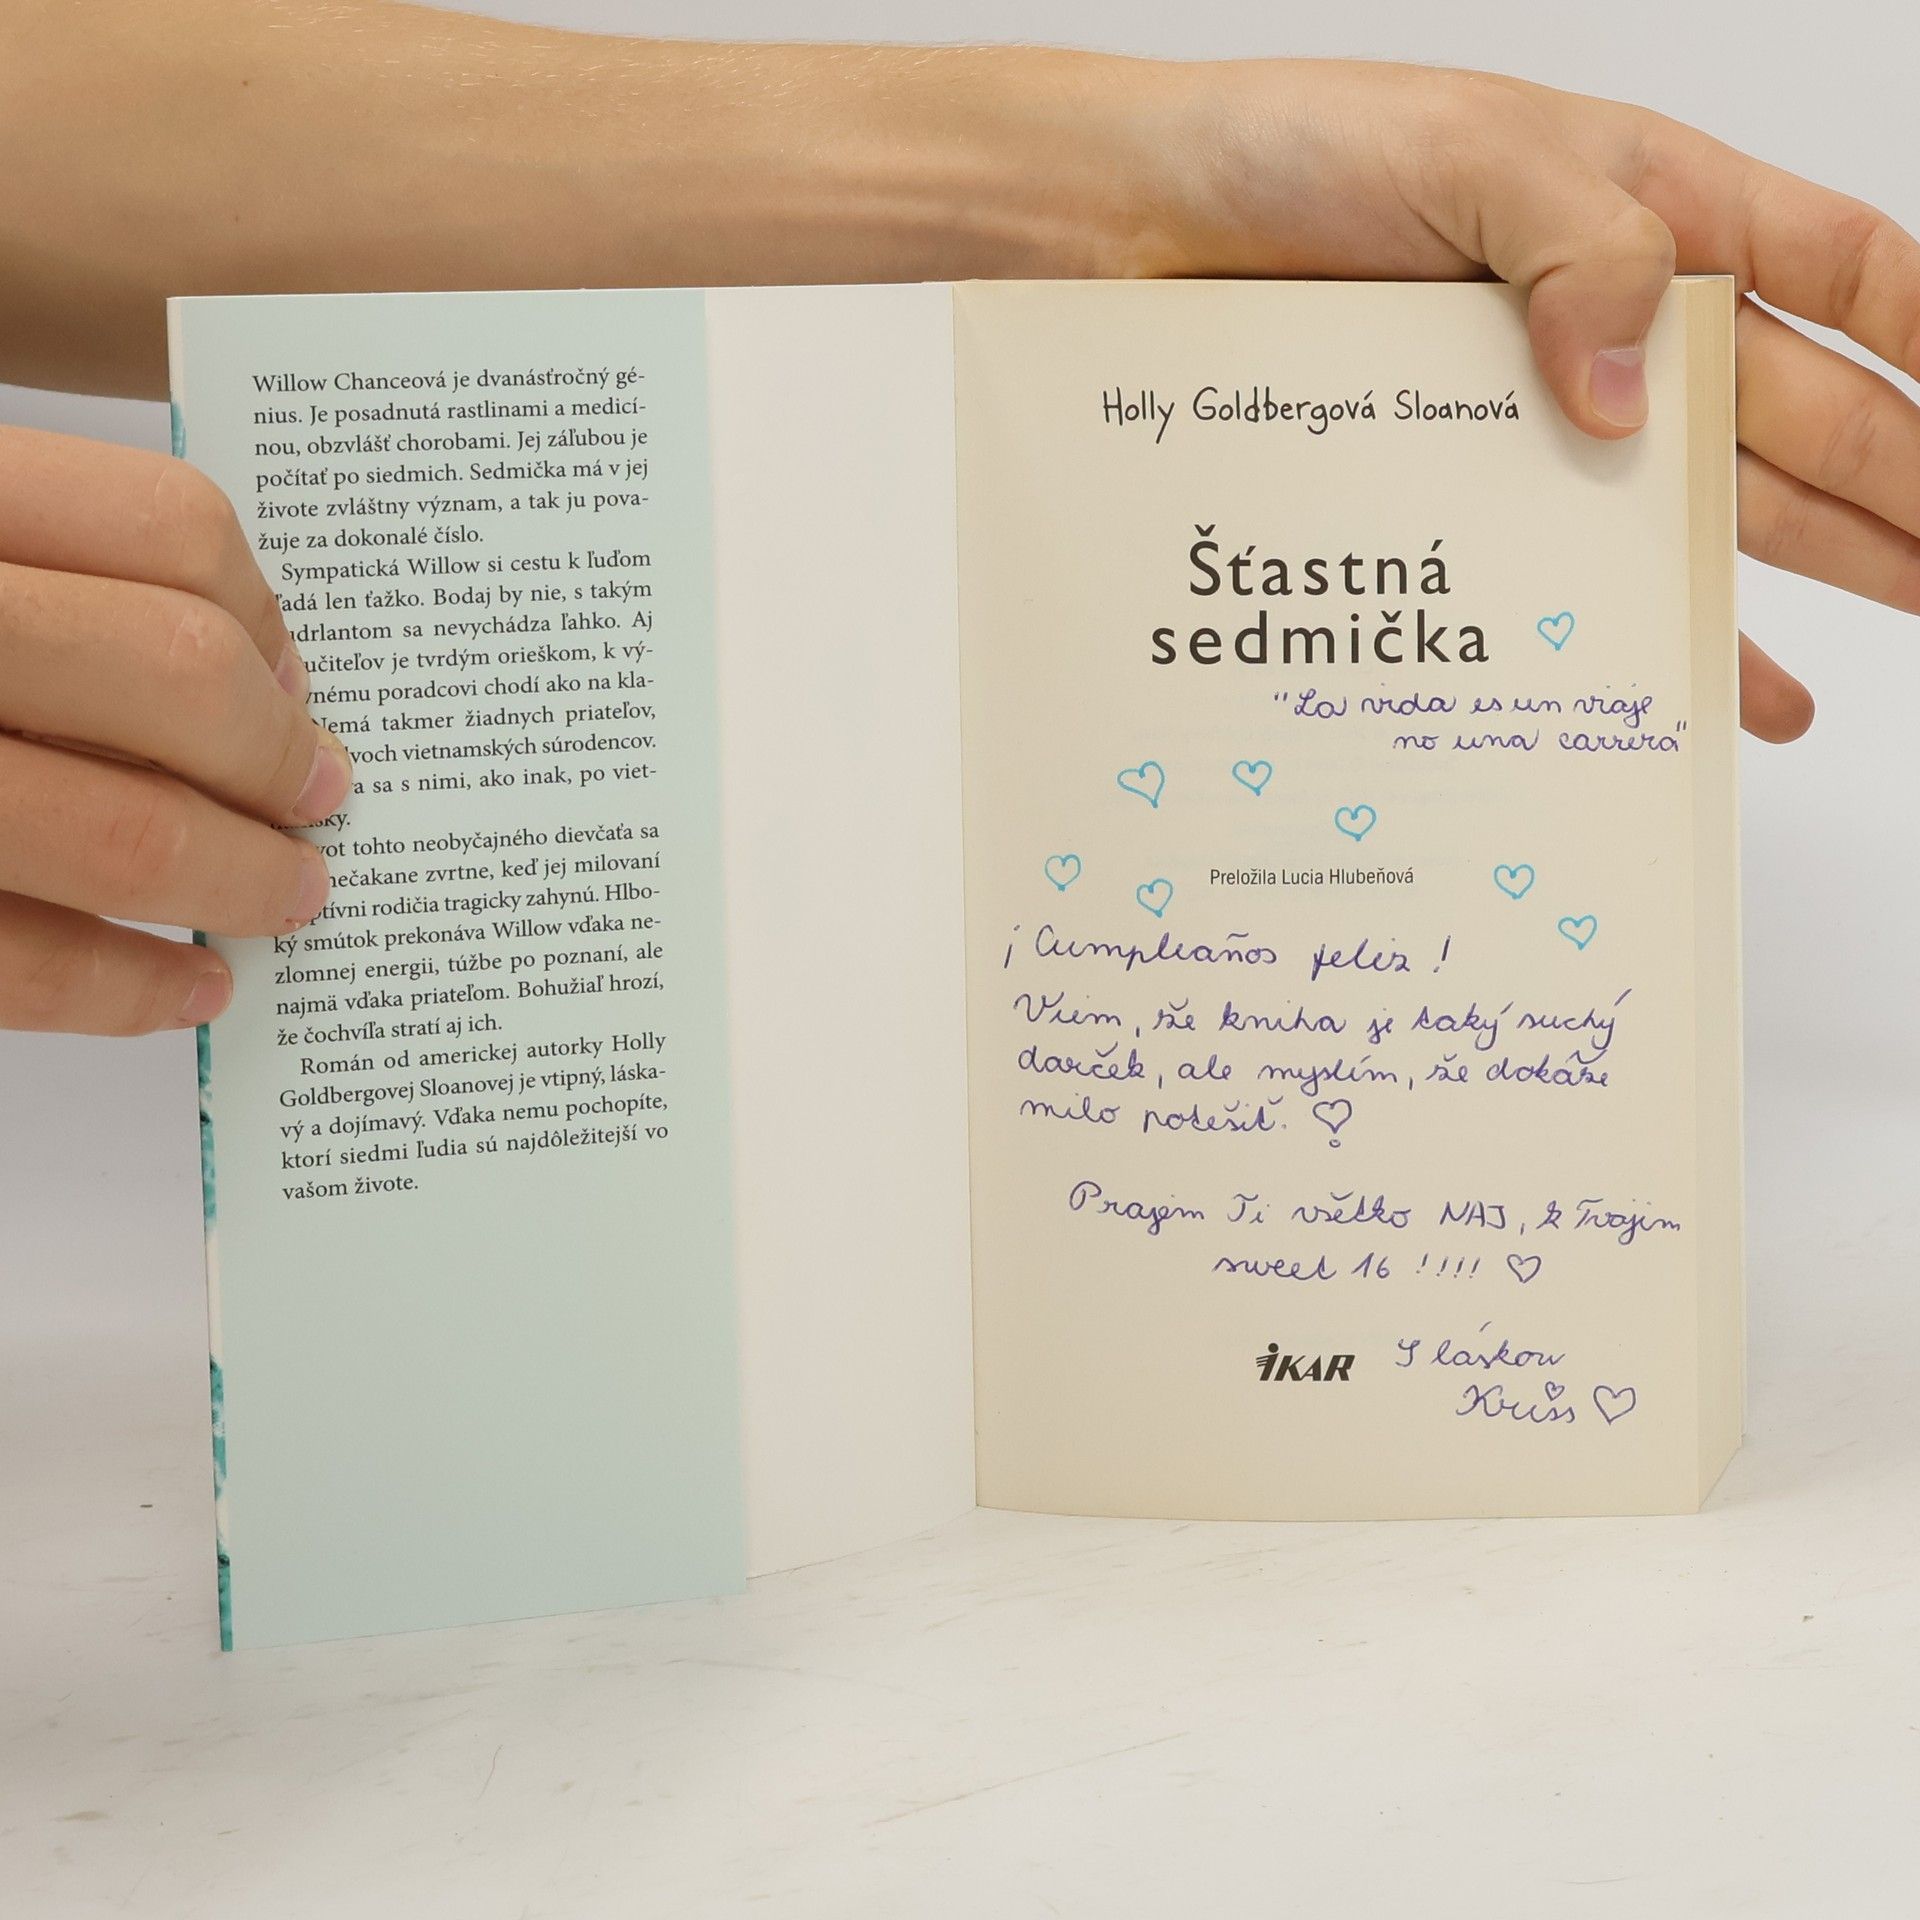 Willow Chanceová je dvanásťročný gé-
nius. Je posadnutá rastlinami a medicí-
nou, obzvlášť chorobami. Jej záľubou je
počítať po siedmich. Sedmička má v jej
živote zvláštny význam, a tak ju pova-
žuje za dokonalé číslo.
Sympatická Willow si cestu k ľuďom
len ťažko. Bodaj by nie, s takým
sa nevychádza ľahko. Aj
učiteľov je tvrdým orieškom, k vý-
poradcovi chodí ako na kla-
Nemá takmer žiadnych priateľov,
vietnamských súrodencov.
sa s nimi, ako inak, po viet-
tohto neobyčajného dievčaťa sa
nečakane zvrtne, keď jej milovaní
rodičia tragicky zahynú. Hlbo-
ký smútok prekonáva Willow vďaka ne-
zlomnej energii, túžbe po poznaní, ale
najmä vďaka priateľom. Bohužiaľ hrozí,
že čochvíľa stratí aj ich.
Román od americkej autorky Holly
Goldbergovej Sloanovej je vtipný, láska-
vý a dojímavý. Vďaka nemu pochopíte,
ktorí siedmi ľudia sú najdôležitejší vo
vašom živote.
Holly Goldbergová Sloanová
Šťastná
sedmička
"La vida es un viaje
no una carrera"
Preložila Lucia Hlubeňová
¡Cumpleaños feliz!
Viem, že kniha je taký suchý
darček, ale myslím, že dokáže
milo potešiť.
Prajem Ti všetko NAJ, k Tvojim
sweet 16 !!!!
IKAR
S láskou
Kriss